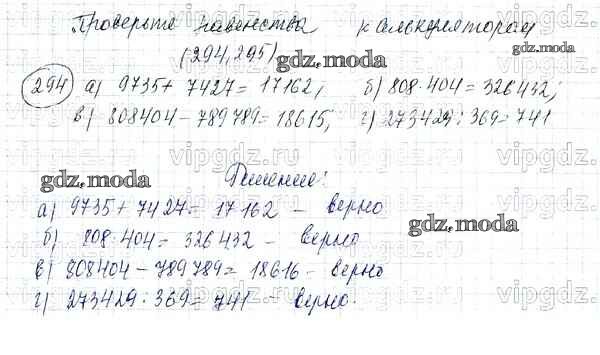 Проверьте равенства калькулятором
gdz.moda
(294, 295)
gdz.moda
294 а) 9735 + 7427 = 17162; б) 808·404 = 326432;
в) 808404 - 789789 = 18615; г) 273429 : 369 = 741
vipgdz.ru vipgdz.ru vipgdz.ru
gdz.moda
Решение:
а) 9735 + 7427 = 17162 - верно
gdz.moda
б) 808·404 = 326432 - верно
в) 808404 - 789789 = 18616 - верно
г) 273429 : 369 = 741 - верно.